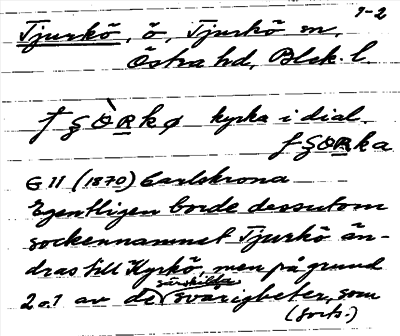 1-2
Tjurkö, ö, Tjurkö sn,
Östra hd, Blek. l.
kyrka i dial.
G 11 (1870) Carlskrona
Egentligen borde dessutom
sockennamnet Tjurkö än-
dras till Kyrkö, men på grund
särskilda
2 o. 1 av de svarigheter, som
(forts.)